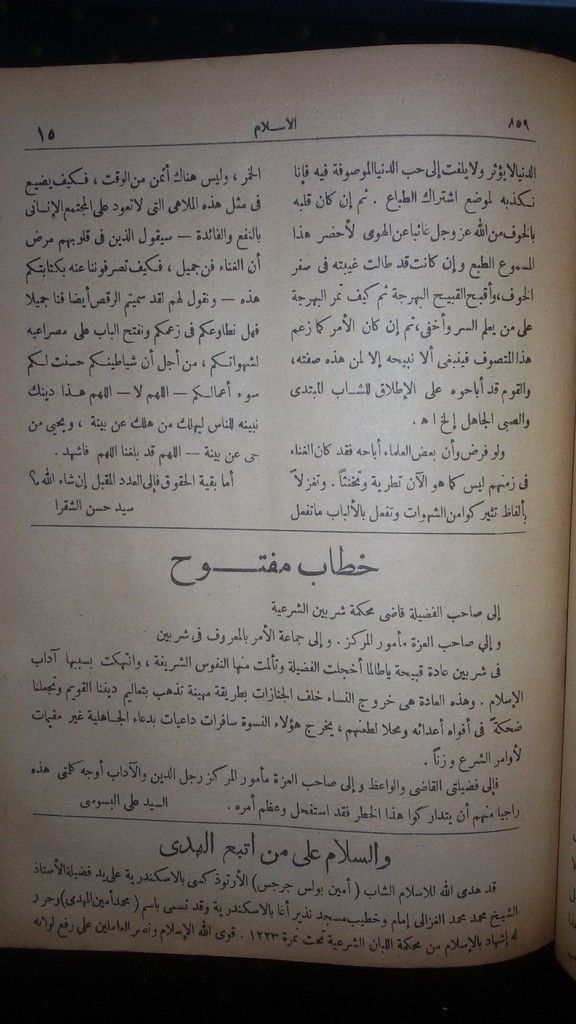 ٨٥٩
الاسلام
١٥
الدنيا لا يؤثر ولا يلفت إلى حب الدنيا الموصوفة فيه فإنا
نكذبه لموضع اشتراك الطباع . ثم إن كان قلبه
بالخوف من الله عز وجل غائبا عن الهوى لأحضر هذا
المسموع الطبع وإن كانت قد طالت غيبته فى سفر
الخوف، وأقبح القبيح البهرجة ثم كيف تمر البهرجة
على من يعلم السر وأخفى، ثم إن كان الأمر كما زعم
هذا المتصوف فينبغى ألا نبيحه إلا لمن هذه صفته،
والقوم قد أباحوه على الإطلاق للشاب المبتدى
والصبى الجاهل إلخ اه .
ولو فرض وأن بعض العلماء أباحه فقد كان الغناء
فى زمنهم ليس كما هو الآن تطرية وتخنثاً . وتغزلاً
بألفاظ تثير كوامن الشهوات وتفعل بالألباب ما تفعل
الخمر ، وليس هناك أثمن من الوقت ، فكيف يضيع
فى مثل هذه الملاهى التى لا تعود على المجتمع الإنسانى
بالنفع والفائدة — سيقول الذين فى قلوبهم مرض
أن الغناء فن جميل ، فكيف تصرفوننا عنه بكتابتكم
هذه — ونقول لهم لقد سميتم الرقص أيضا فنا جميلا
فهل نطاوعكم فى زعمكم ونفتح الباب على مصراعيه
لشهواتكم ، من أجل أن شياطينكم حسنت لكم
سوء أعمالكم — اللهم لا — اللهم هذا دينك
نبينه للناس ليهلك من هلك عن بينة ، ويحيى من
حى عن بينة — اللهم قد بلغنا اللهم فاشهد .
أما بقية الحقوق فإلى العدد المقبل إن شاء الله ؟
سيد حسن الشقرا
خطاب مفتوح
إلى صاحب الفضيلة قاضى محكمة شربين الشرعية
وإلى صاحب العزة مأمور المركز . وإلى جماعة الأمر بالمعروف فى شربين
فى شربين عادة قبيحة ياطالما أخجلت الفضيلة وتألمت منها النفوس الشريفة ، وانتهكت بسببها آداب
الإسلام . وهذه العادة هى خروج النساء خلف الجنازات بطريقة مهينة تذهب بتعاليم ديننا القويم وتجعلنا
ضحكة فى أفواه أعدائه ومحلا لطعنهم ، يخرج هؤلاء النسوة سافرات داعيات بدعاء الجاهلية غير مقيمات
لأوامر الشرع وزناً .
فإلى فضيلتى القاضى والواعظ وإلى صاحب العزة مأمور المركز رجل الدين والآداب أوجه كلمتى هذه
راجيا منهم أن يتداركوا هذا الخطر فقد استفحل وعظم أمره . السيد على البسومى
والسلام على من اتبع الهدى
قد هدى الله للاسلام الشاب ( أمين بولس جرجس ) الأرثوذكسى بالاسكندرية على يد فضيلة الأستاذ
الشيخ محمد محمد الغزالى إمام وخطيب مسجد نذير أغا بالاسكندرية وقد تسمى باسم ( محمد أمين المهدى ) وحرر
له إشهاد بالإسلام من محكمة اللبان الشرعية تحت نمرة ١٢٢٣ . قوى الله الإسلام ونصر العاملين على رفع لوائه